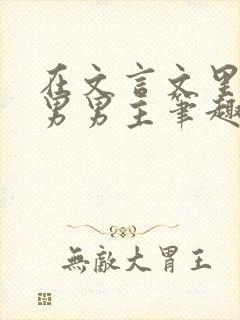 在文言文里
男男主笔趣
無敵大胃王